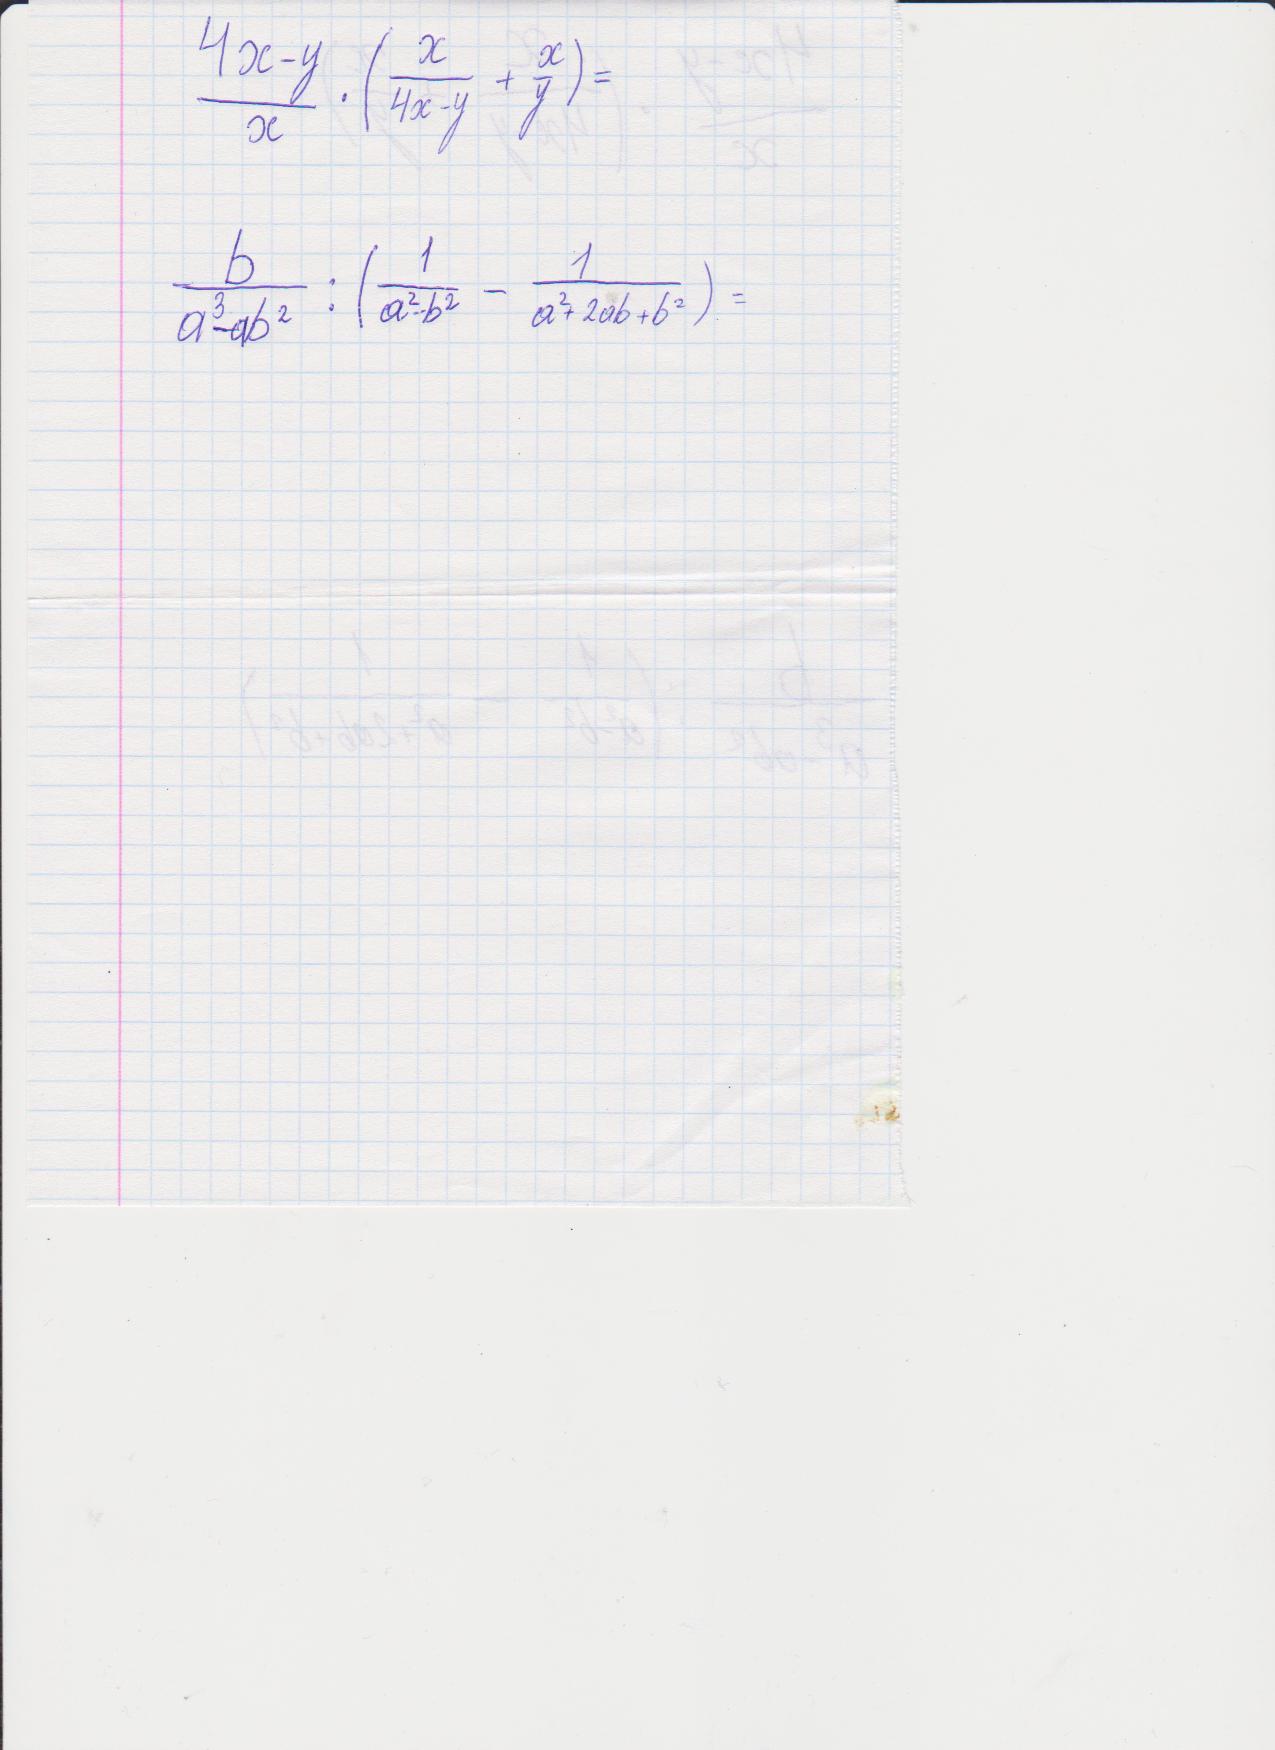 (4x-y)/x · (x/(4x-y) + x/y) =
b/(a³-ab²) : (1/(a²-b²) - 1/(a²+2ab+b²)) =